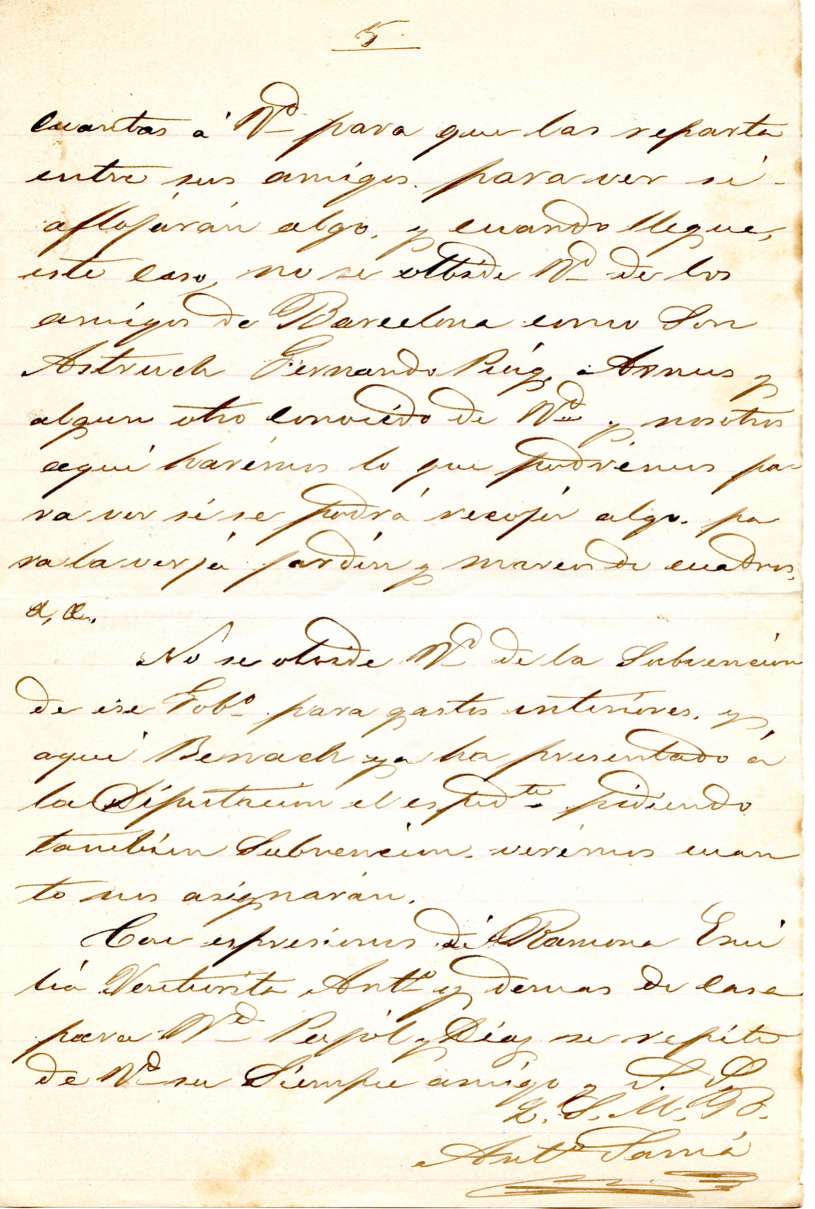 5.
cuantas á Vd para que las reparta
entre sus amigos. para ver si-
aflojárán algo. y cuando llegue,
este caso, no se olbide Vd de los
amigos de Barcelona como Son
Astruch Fernando Puig, Arnus y
algun otro conocido de Vd y nosotros
aquí harémos lo que podrémos pa-
ra ver si se podrá recojer algo. pa
ra la verja jardin y marcos de cuadros,
&, &,.
No se olvide Vd de la Subvencion
de ese Gobo para gastos interiores, y
aqui Benach ya ha presentado á
la Diputacion el espedte pidiendo
tambien Subvencion. verémos cuan
to nos asignarán.
Con espresiones dé Ramona Emi
lia Venturita Anto y demas de casa
para Vd Pujól y Diaz se repite
de Vd su Siempre amigo y S. S.
Q. S. M. B.
Anto Samá